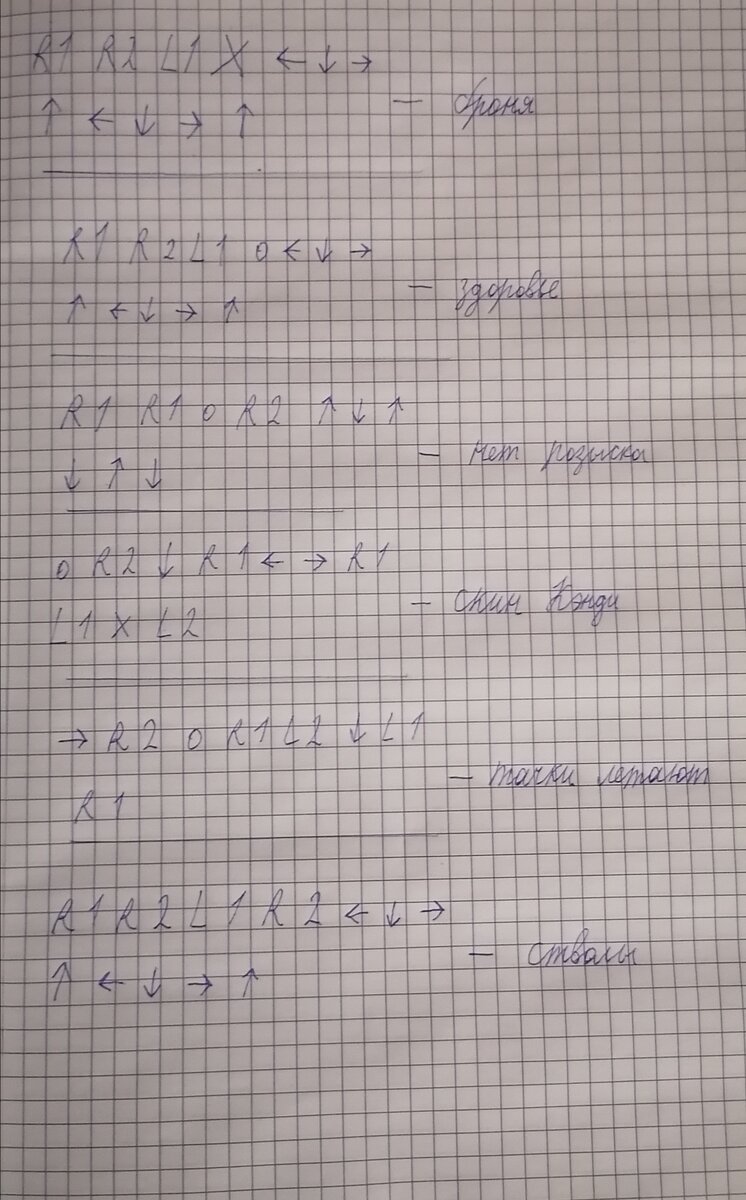 R1 R2 L1 X ← ↓ →
↑ ← ↓ → ↑ — броня
R1 R2 L1 O ← ↓ →
↑ ← ↓ → ↑ — здоровье
R1 R1 O R2 ↑ ↓ ↑
↓ ↑ ↓ — нет розыска
O R2 ↓ R1 ← → R1
L1 X L2 — скин Кэнди
→ R2 O R1 L2 ↓ L1
R1 — тачки летают
R1 R2 L1 R2 ← ↓ →
↑ ← ↓ → ↑ — стволы